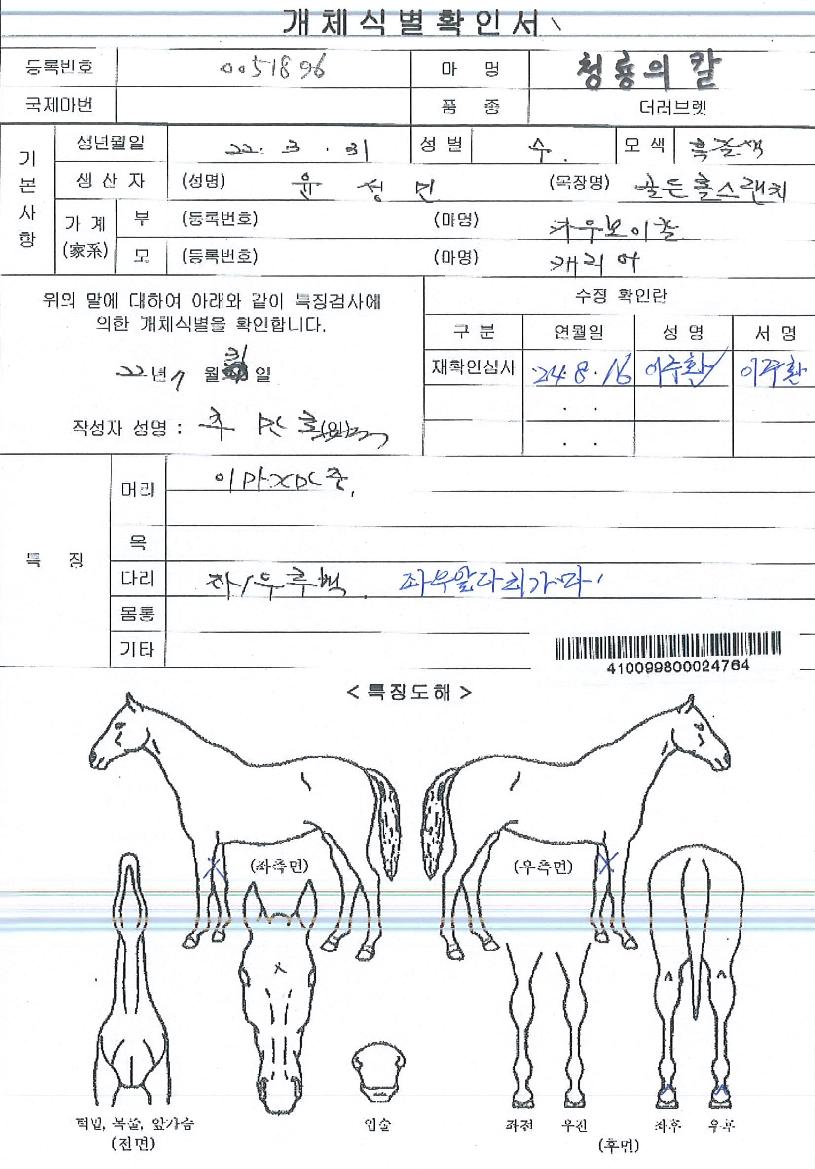 개체식별확인서
등록번호 0051896 마 명 청룡의칼
국제마번 품 종 더러브렛
기본사항
성년월일 22. 3. 31 성별 수. 모색 흑갈색
생산자 (성명) 윤성민 (목장명) 골든홀스랜치
가계(家系) 부 (등록번호) (마명) 카우보이칼
모 (등록번호) (마명) 캐리어
위의 말에 대하여 아래와 같이 특징검사에
의한 개체식별을 확인합니다.
22년 7월 31일
작성자 성명 : (인)
수정 확인란
구분 연월일 성명 서명
재확인심사 24.8.16 이주환 이주환
. .
. .
특징
머리 이마X
목
다리 좌/우후백. 좌우앞다리가마
몸통
기타
410099800024764
< 특징도해 >
(좌측면) (우측면)
턱밑, 목줄, 앞가슴
(전면)
입술
좌전 우전 좌후 우후
(후면)